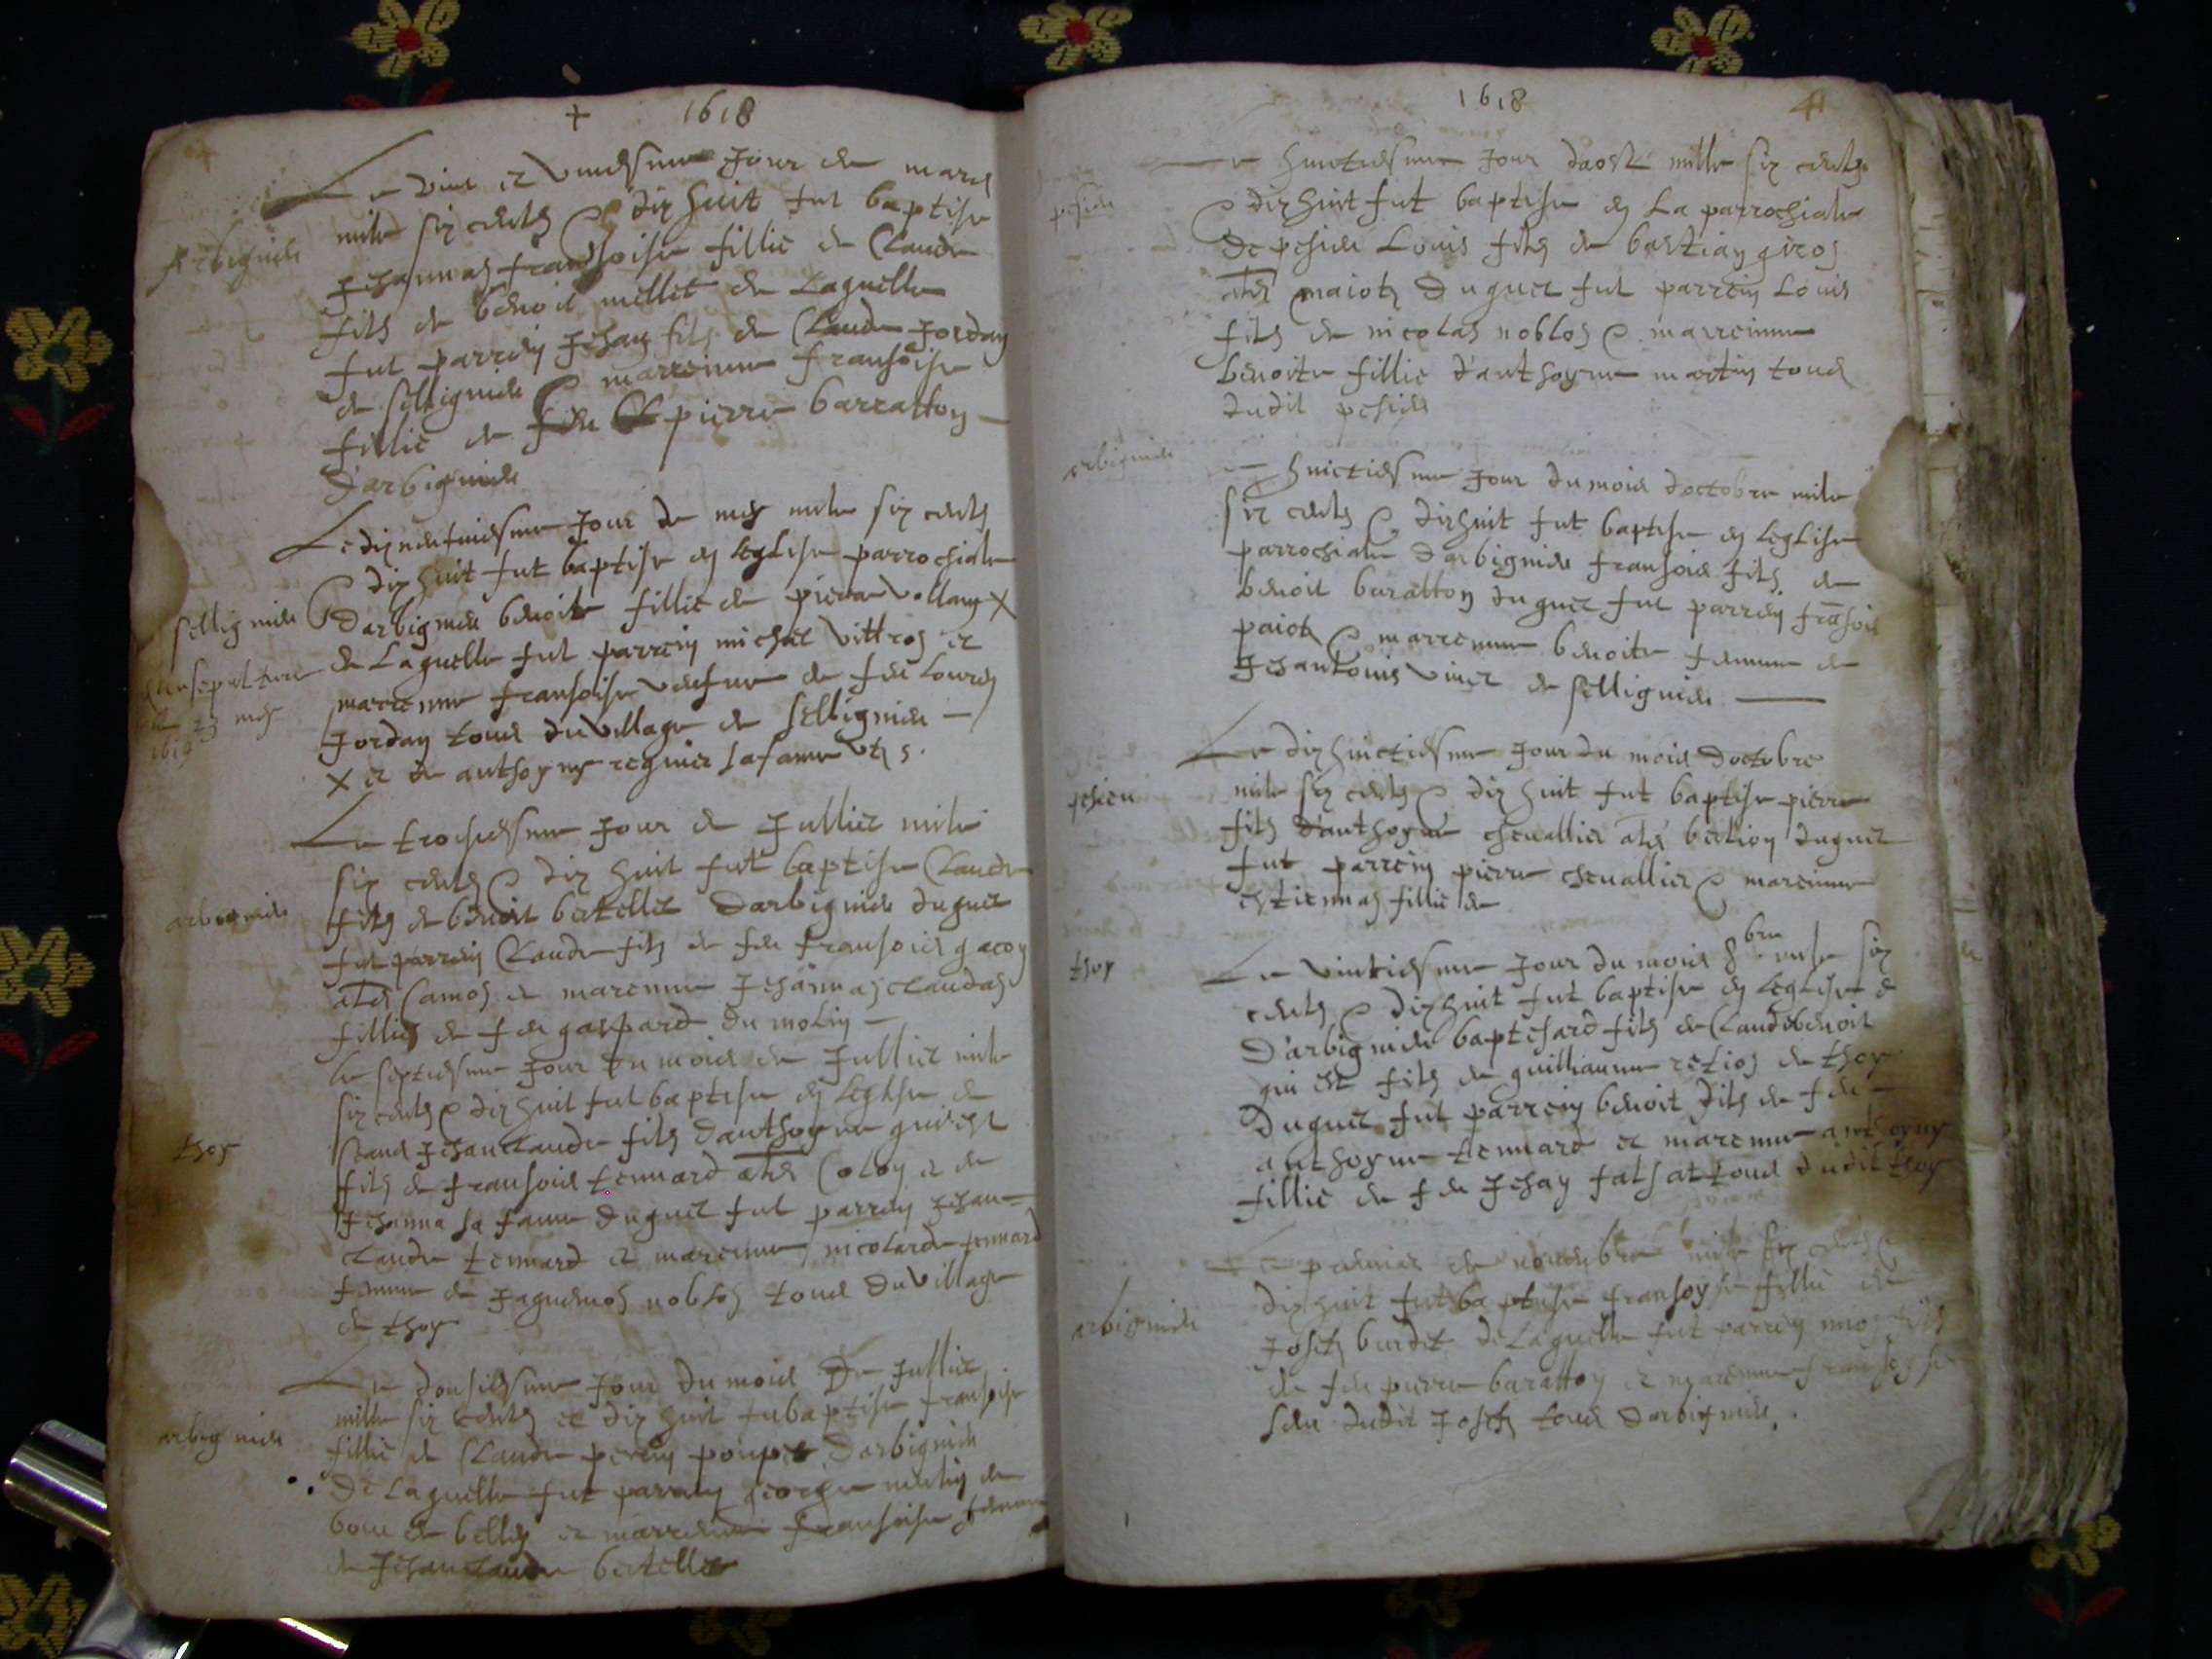 + 1618
Le vint et uniesme Jour de mars
mile six cents & dix huit fut baptise
Arbignieu
Jehannaz fransoise fillie de Claude
fils de benoit mellet de Laquelle
fut parrein Jehan fils de Claude Jordan
de sellignieu & marreinne fransoise
fillie de feu pierre barratton
Darbignieu
Le dizneufuiesme Jour de mey mile six cents
& dix huit fut baptise en Leglise parrochiale
sellignieu
Darbignieu benoite fillie de pierre vollant X
de Laquelle fut parrein michel vittroz et
sepulture
le 23 mey
1619
marrenne fransoise veufue de feu Lourens
Jordan tous du village de sellignieu
X et de anthoyny reginer sa fame
Le troisiesme Jour de Jullliet mile
six cents & dix huit fut baptise Claude
arbignieu
fils de benoit bertellet Darbignieu duquel
fut parrein Claude fils de feu fransois gacoy
Camoz et marenne Jehannaz claudaz
fillies de feu gaspard du molin
le septiesme Jour du mois de Jullliet mile
six cents & dix huit fut baptise en Leglise de
Jehan Claude fils danthoyne qui est
thoy
fils de fransois tennard Coloy et de
Jehanna sa fame duquel fut parrein Jehan
Claude tennard et marenne nicolarde tennard
femme de Jaquemoz nobloz tous du village
de thoy
Le dousiesme Jour du mois De Jullliet
mille six cents et dix huit fu baptise fransoise
arbignieu
fillie de Claude perrin poupet Darbignieu
De Laquelle fut parrein george
de belley et marrenne fransoise femme
de Jehan Claude bertellet
1618
huictiesme Jour daost mille six cents
pesieu
& dix huit fut baptise en La parrochiale
De pesieu Louis fils de bastian giroz
maiot Duquel fut parrein Louis
fils de nicolas nobloz & marreinne
benoite fillie d'anthoyne martin tous
dudit pesieu
arbignieu
huictiesme Jour du mois doctobre mile
six cents & dixhuit fut baptise en Leglise
parrochiale Darbignieu fransois fils de
benoit baratton duquel fut parrein frāsois
paiot & marrenne benoite femme de
Jehan Louis de sellignieu
Le dix huictiesme Jour du mois doctobre
pesieu
mile six cents & dix huit fut baptise pierre
fils d'anthoyne cheuallier bertion duquel
fut parrein pierre cheuallier & marreinne
estiennaz fillie de
thoy
Le vintiesme Jour du mois 8bre mile six
cents & dixhuit fut baptise en Leglise
D'arbignieu baptehard fils de Claude benoit
qui est fils de guilliaume retioz de thoy
Duquel fut parrein benoit fils de feu
anthoyne tennard et marenne anthoyny
fillie de feu Jehan falsat tous dudit thoy
Le premier de nouembre mile six cents &
arbignieu
dix huit fut baptise fransoyse fillie de
Joseph burdet de Laquelle fut parrein
de feu pierre baratton et marenne fransoyse
seur dudit Joseph tous Darbignieu.